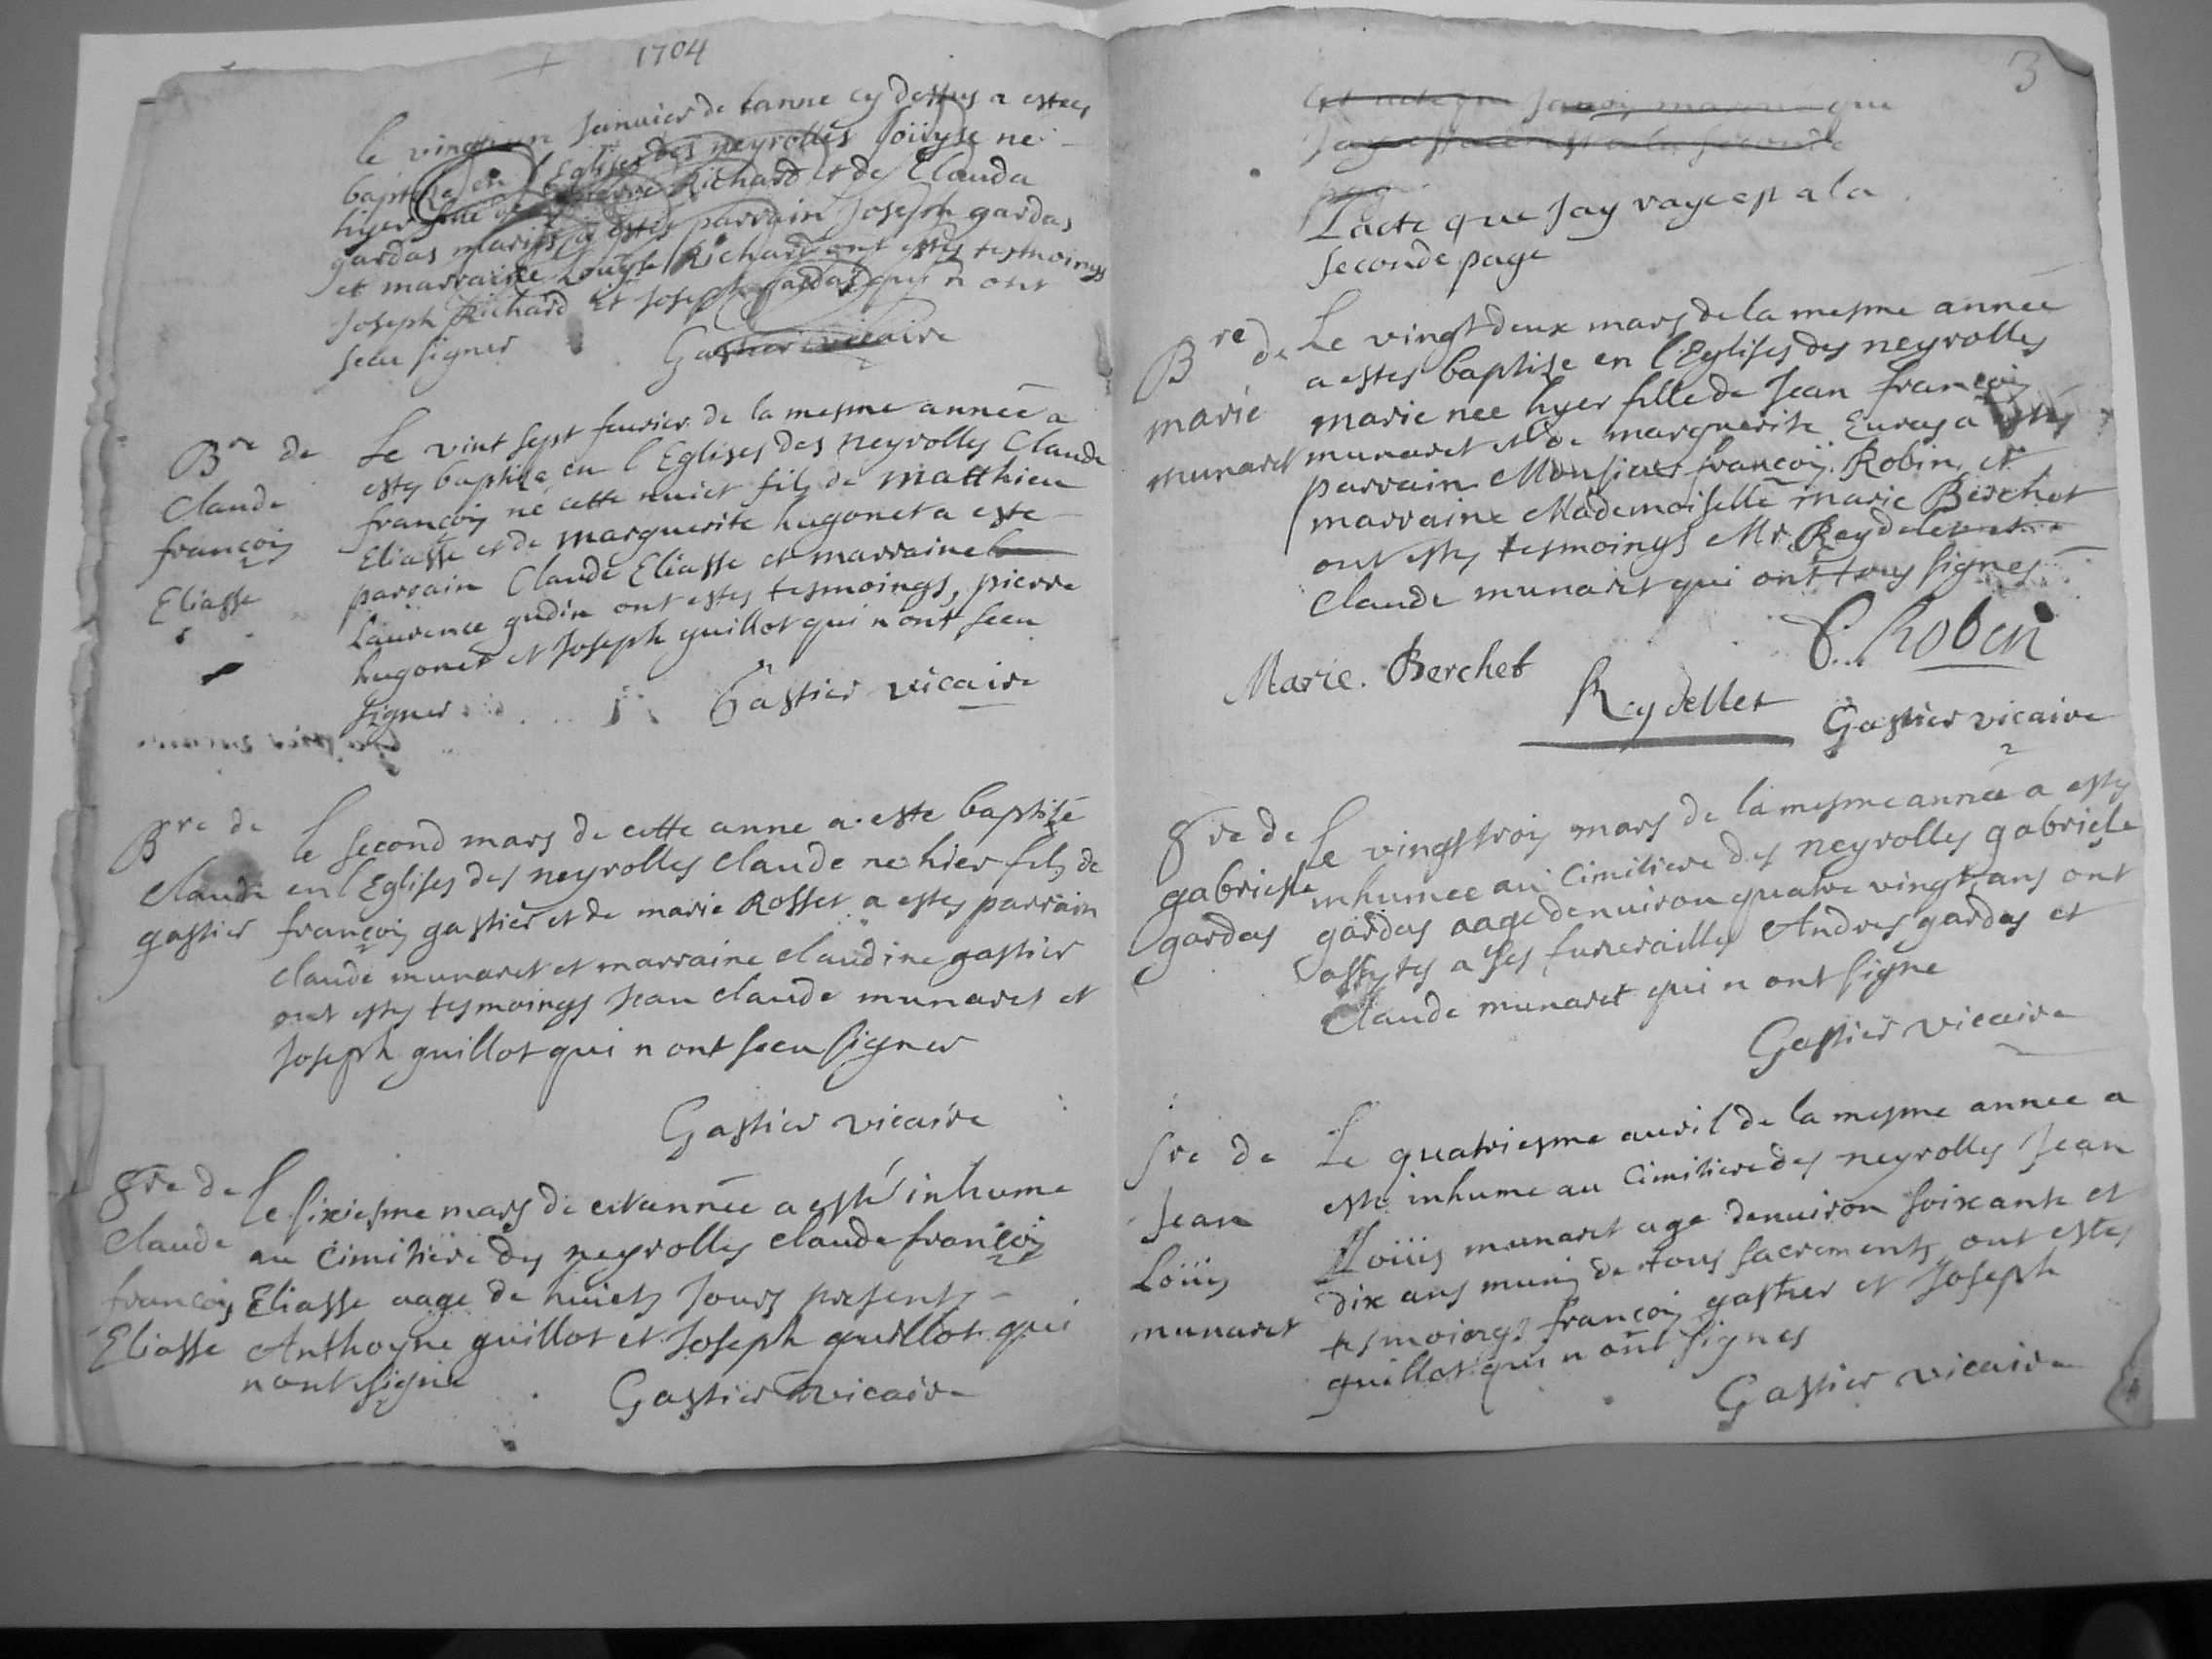 1704
le vingt un Janvier de lanne cy dessus a estes
baptisa en l Eglises des neyrolles Loüyse ne
hyer fille de pierre Richard et de Clauda
gardas maries a estes parrain Joseph gardas
et marraine Louyse Richard ont estes tesmoings
Joseph Richard et Joseph gardas qui n ont
sceu signer
Gastier vicaire
Bre de
Claude
françois
Eliasse
Le vint sept feurier de la mesme année a
estes baptize en l Eglises des neyrolles Claude
françois né cette nuict fils de matthieu
Eliasse et de marguerite hugonet a este
parrain Claude Eliasse et marraine
Laurence gudin ont estes tesmoings, pierre
hugonet et Joseph guillot qui n ont sceu
signer
Gastier vicaire
Bre de
Claude
gastier
le second mars de cette anne a este baptisé
en l Eglises des neyrolles claude ne hier fils de
françois gastier et de marie Rosset a estes parrain
claude munaret et marraine claudine gastier
ont estes tesmoings Jean claude munaret et
Joseph guillot qui n ont sceu signer
Gastier vicaire
Sre de
Claude
françois
Eliasse
le sixiesme mars de cet année a esté inhume
au Cimitiere des neyrolles claude françois
Eliasse aage de huict Jours presents
Anthoyne guillot et Joseph guillot qui
n ont signe
Gastier vicaire
3
Lacte que Jay raye est a la
seconde page
Bre de
marie
munaret
Le vingt deux mars de la mesme année
a estes baptise en l Eglises des neyrolles
marie nee hyer fille de Jean françois
munaret et de marguerite Euras a estes
parrain Monsieur françois Robin et
marraine Mademoiselle marie Berchet
ont estes tesmoings Mr Reydelet et
Claude munaret qui ont tous signes
Marie. Berchet
Robin
Reydellet
Gastier vicaire
Sre de
gabrielle
gardas
Le vingt trois mars de la mesme année a estes
inhumee au Cimitiere des neyrolles gabrielle
gardas aage denuiron quatre vingt ans ont
assistes a ses funerailles Andres gardas et
Claude munaret qui n ont signe
Gastier vicaire
Sre de
Jean
Loüis
munaret
Le quatriesme auril de la mesme annee a
este inhume au Cimitiere des neyrolles Jean
Loüis munaret age denuiron soixante et
dix ans munis de tous sacrements ont estes
tesmoings françois gastier et Joseph
guillot qui n ont signes
Gastier vicaire